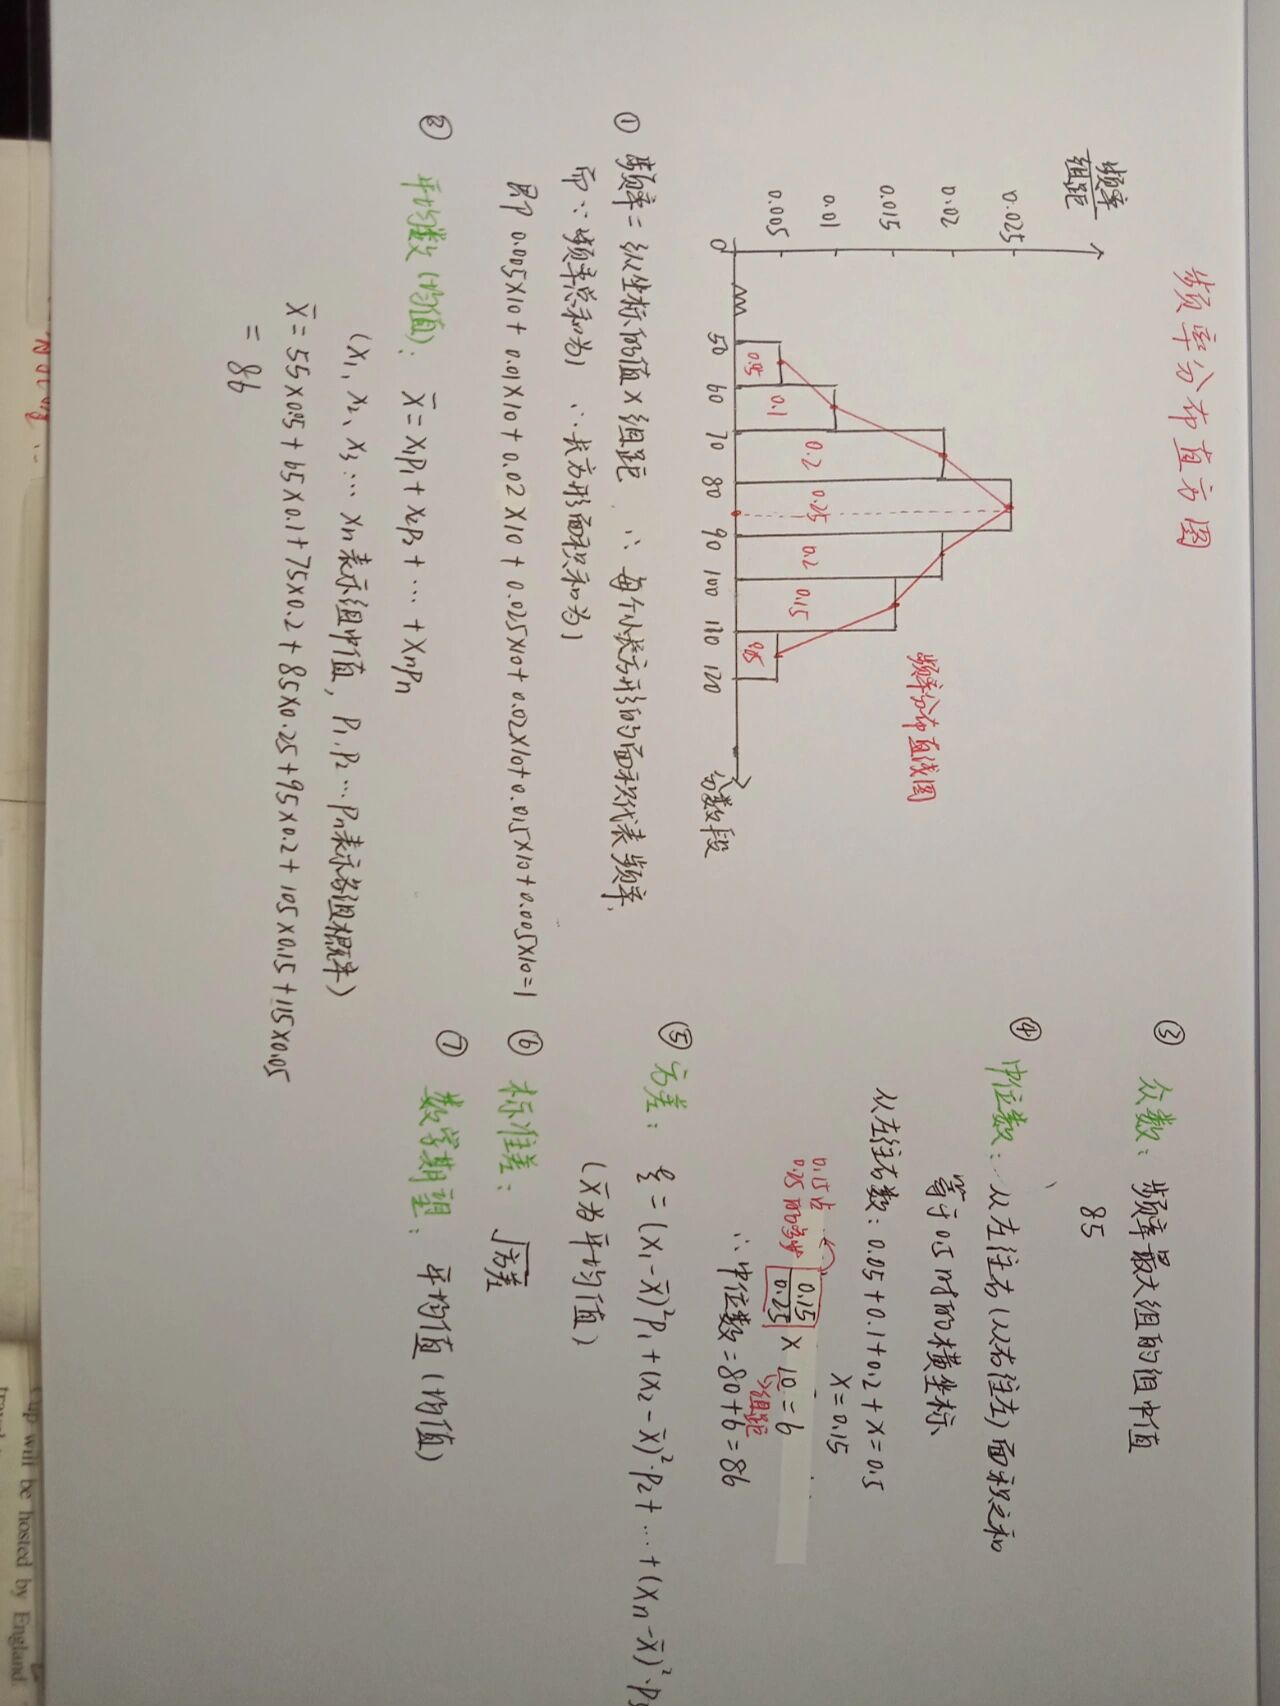 频率分布直方图
频率/组距
0.025
0.02
0.015
0.01
0.005
0 50 60 70 80 90 100 110 120 分数段
0.05 0.1 0.2 0.25 0.2 0.15 0.05
频率分布直线图
① 频率=纵坐标的值×组距 ∴每个小长方形的面积代表频率,
而∵频率总和为1 ∴长方形面积和为1
即 0.005×10+0.01×10+0.02×10+0.025×10+0.02×10+0.015×10+0.005×10=1
② 平均数(均值): x̄=x₁p₁+x₂p₂+…+xnpn
(x₁、x₂、x₃…xn表示组中值, p₁.p₂…pn表示各组概率)
x̄=55×0.05+65×0.1+75×0.2+85×0.25+95×0.2+105×0.15+115×0.05
=86
③ 众数: 频率最大组的组中值
85
④ 中位数: 从左往右(从右往左)面积之和
等于0.5时的横坐标
从左往右数: 0.05+0.1+0.2+x=0.5
x=0.15
0.15占
0.25的
0.15/0.25 × 10 = 6
组距
∴中位数=80+6=86
⑤ 方差: =(x₁-x̄)²p₁+(x₂-x̄)²·p₂+…+(xn-x̄)²·p
(x̄为平均值)
⑥ 标准差: √方差
⑦ 数学期望: 平均值(均值)
up will be hosted by England